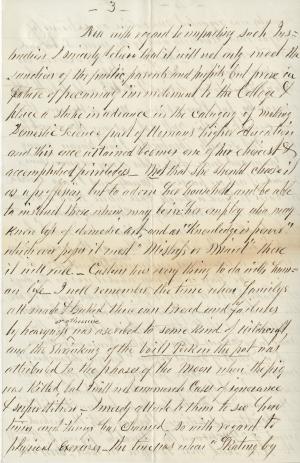 - 3 -
Now with regard to imparting such Ins-
truction I sincerely believe that it will not only meet the
sanction of the public, parents and pupils, but prove in
future of pecuniary increment to the College &
place a stake in advance in the category of making
Domestic Science part of Woman's higher education
and this once attained becomes one of her choicest &
accomplished privileges - Not that she should choose it
as a profession but to adorn her household and be able
to instruct those whom may be in her employ who may
know less of domestic Art, and as "Knowledge is power"
which ever posses it most "Mistress or Maid" there
it will rule - Custom has every thing to do with hum-
an life - I well remember the time when Familys
all made & baked their own Bread and failures
by heavyness was ascribed to some kind of witchcraft,
and the shrinking of the boil'd Pork in the pot was
attributed to the phases of the Moon when the pig
was killed, but I will not enumerate cases of ignorance
& superstition - I merely allude to them to see how
times and things has changed, so with regard to
physical exercise - the time was when Skating by